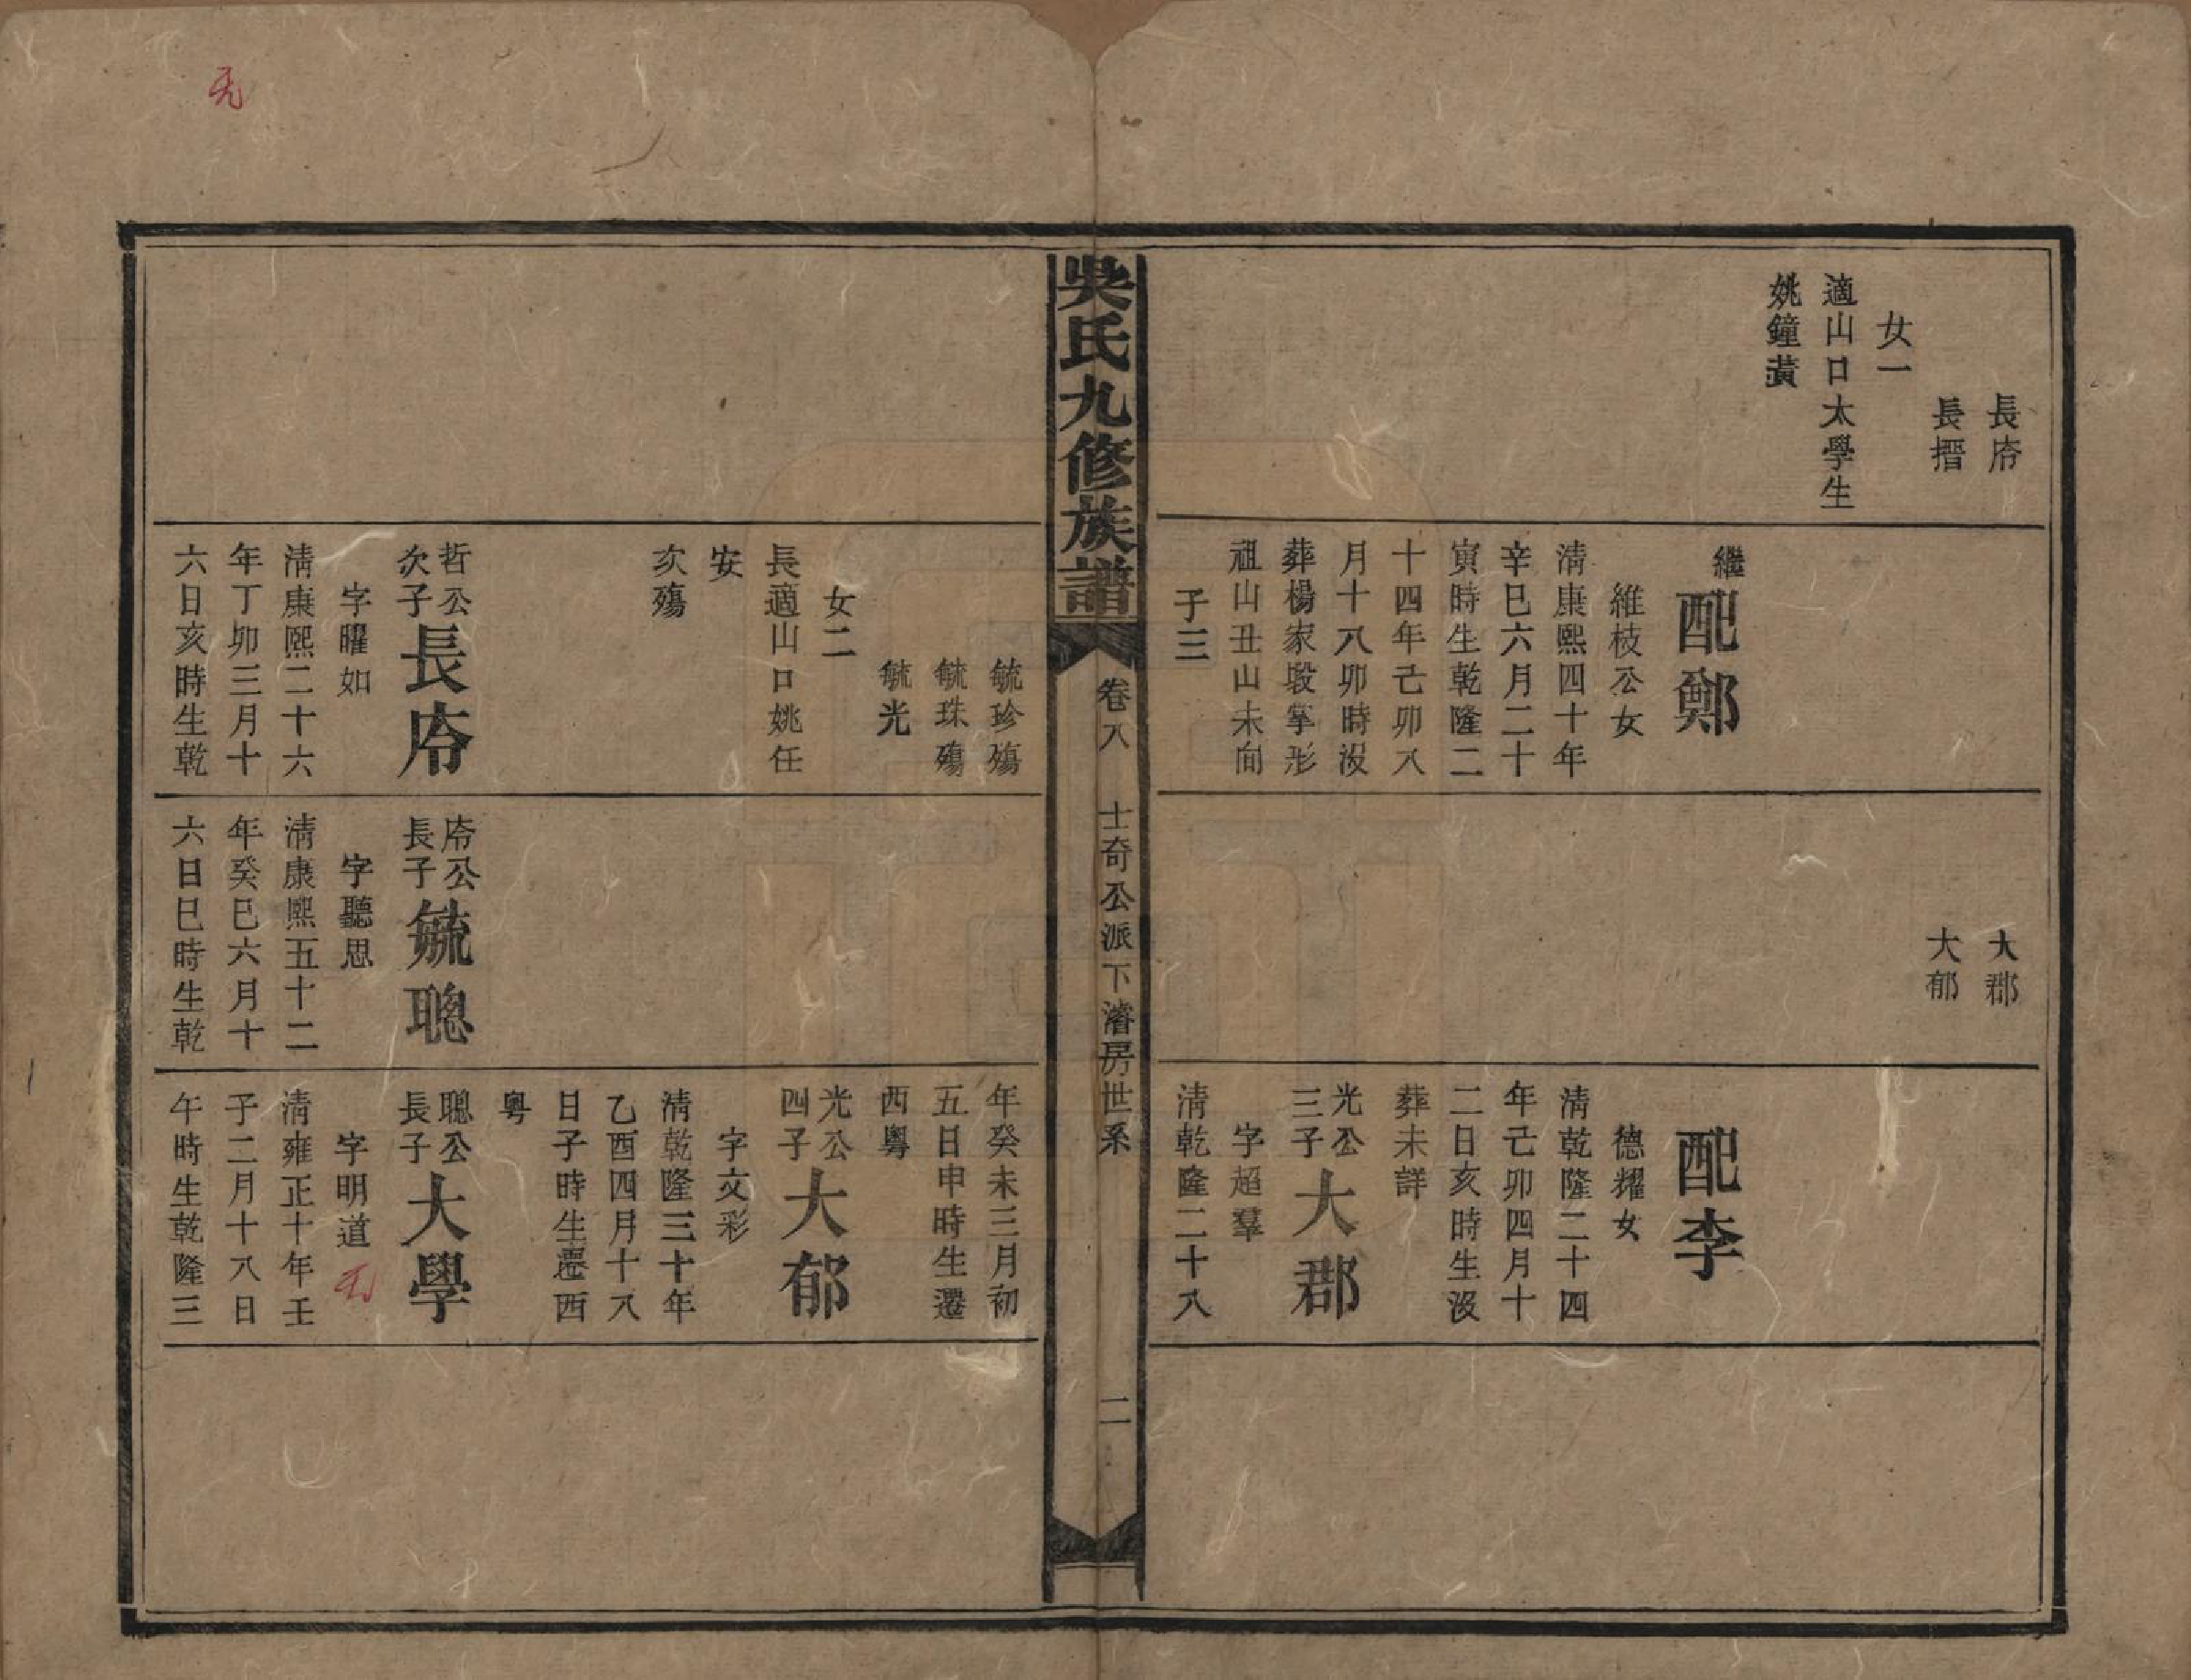 長㡽
長搢
女一
適山口太學生
姚鐘蕡
繼
配鄭
維枝公女
清康熙四十年
辛巳六月二十
寅時生乾隆二
十四年己卯八
月十八卯時沒
葬楊家塅掌形
祖山丑山未向
子三
大郡
大郁
配李
德耀女
清乾隆二十四
年己卯四月十
二日亥時生沒
葬未詳
光公
三子
大郡
字超羣
清乾隆二十八
吳氏九修族譜
卷八
士奇公派下濬房世系
二
毓珍殤
毓珠殤
毓光
女二
長適山口姚任
安
次殤
哲公
次子
長㡽
字曜如
清康熙二十六
年丁卯三月十
六日亥時生乾
㡽公
長子
毓聰
字聽思
清康熙五十二
年癸巳六月十
六日巳時生乾
年癸未三月初
五日申時生遷
西粵
光公
四子
大郁
字文彩
清乾隆三十年
乙酉四月十八
日子時生遷西
粵
聰公
長子
大學
字明道
清雍正十年壬
子二月十八日
午時生乾隆三